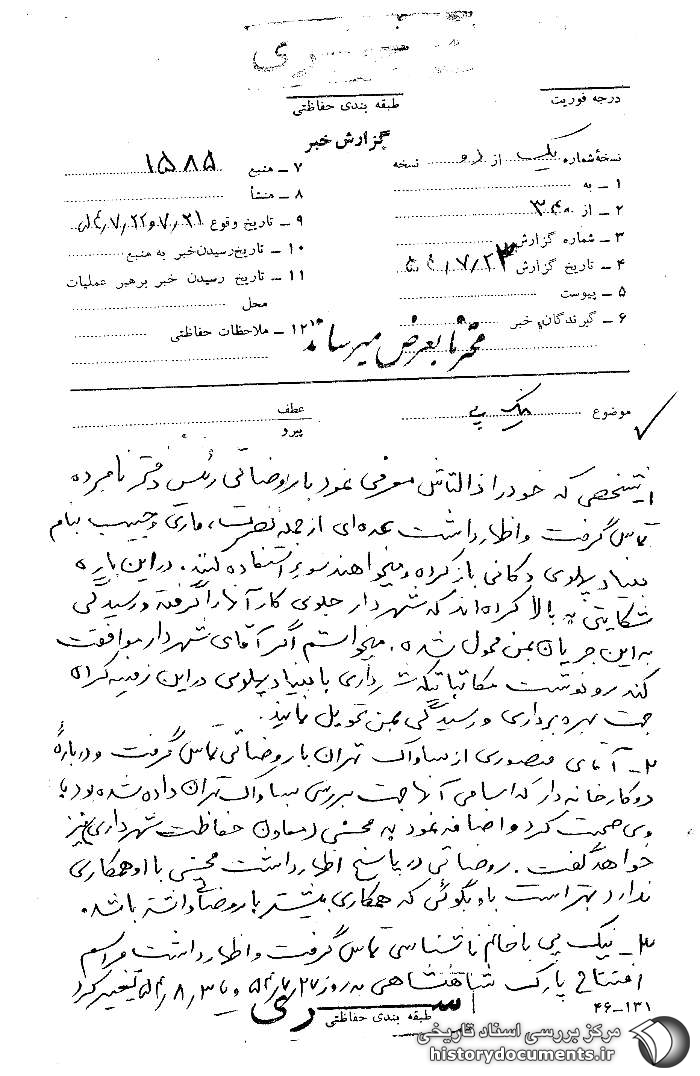 سری
درجه فوریت
طبقه بندی حفاظتی
گزارش خبر
نسخه شماره یک از دو نسخه
۱ ـ به
۲ ـ از ۳۴۰
۳ ـ شماره گزارش
۴ ـ تاریخ گزارش ۵۴/۷/۲۳
۵ ـ پیوست
۶ ـ گیرندگان خبر
۷ ـ منبع ۱۵۸۵
۸ ـ منشأ
۹ ـ تاریخ وقوع ۲۱/۷ و ۵۴/۷/۲۲
۱۰ ـ تاریخ رسیدن خبر به منبع
۱۱ ـ تاریخ رسیدن خبر برهبر عملیات
محل
۱۲ ـ ملاحظات حفاظتی
محترماً بعرض میرساند
موضوع نیک پی
عطف
پیرو
شخصی که خود را ذالتاش معرفی نمود با روضاتی رئیس دفتر نامبرده
تماس گرفت و اظهار داشت عده‌ای از جمله نصرت، ماری و حبیب بنام
بنیاد پهلوی دکانی باز کرده و میخواهند سوء استفاده کنند. در این باره
شکایتی به بالا کرده‌اند که شهردار جلوی کار آنها را گرفته و رسیدگی
به این جریان بمن محول شده. میخواستم اگر آقای شهردار موافقت
کند رونوشت مکاتباتیکه شهرداری با بنیاد پهلوی در این زمینه کرده
جهت بهره برداری و رسیدگی بمن تحویل نمایند.
۲ـ آقای منصوری از ساواک تهران با روضاتی تماس گرفت و درباره
دو کارخانه دار که اسامی آنها جهت بررسی بساواک تهران داده شده بود با
وی صحبت کرد و اضافه نمود به محسنی (معاون حفاظت شهرداری) نیز
خواهد گفت. روضاتی در پاسخ اظهار داشت محسنی با او همکاری
ندارد بهتر است باو بگوئی که همکاری بیشتر با روضاتی داشته باشد.
۳ـ نیک پی با خانم ناشناسی تماس گرفت و اظهار داشت مراسم
افتتاح پارک شاهنشاهی به روز ۵۴/۷/۲۷ و یا ۵۴/۸/۳ تغییر کرد
سری
طبقه بندی حفاظتی
۴۶-۱۳۱
مرکز بررسی اسناد تاریخی
historydocuments.ir